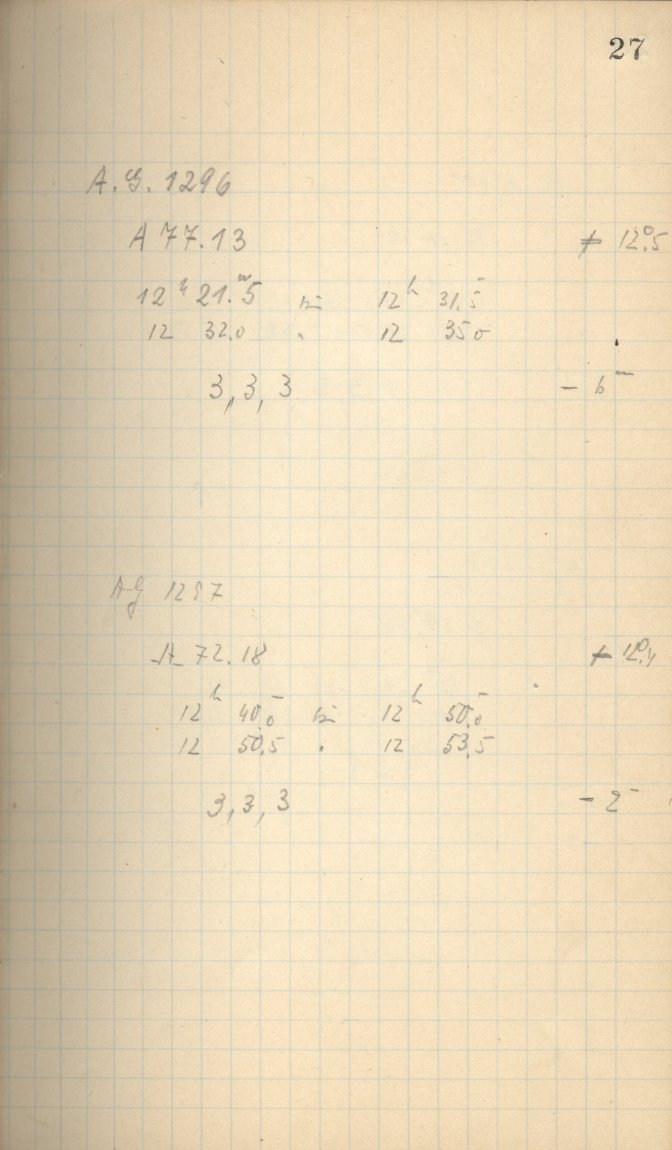 27
A.G. 1296
A 77.13 + 12°.5
12ʰ 21.ᵐ5 bis 12ʰ 31.ᵐ5
12 32.0 " 12 35.0
3, 3, 3 - 6ᵐ
AG 1297
A 72.18 + 12°.4
12ʰ 40.ᵐ0 bis 12ʰ 50.ᵐ0
12 50.5 " 12 53.5
3, 3, 3 - 2ᵐ